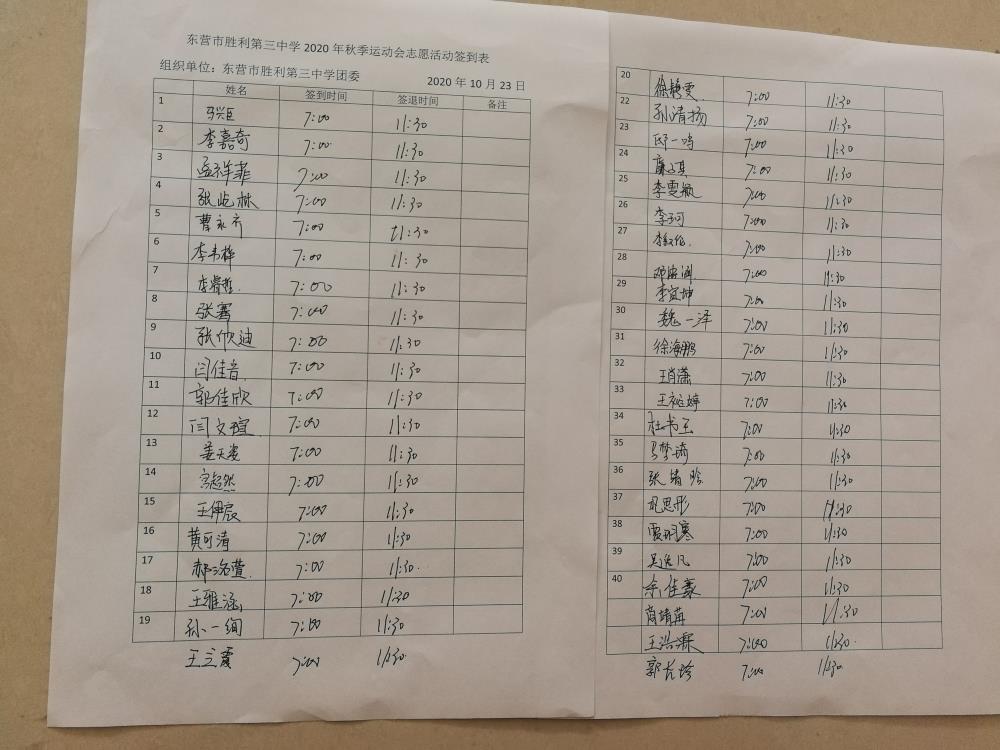 东营市胜利第三中学 2020 年秋季运动会志愿活动签到表
组织单位：东营市胜利第三中学团委 2020 年 10 月 23 日
姓名 签到时间 签退时间 备注
1 马兴臣 7:00 11:30
2 李嘉奇 7:00 11:30
3 孟祥菲 7:00 11:30
4 张屹林 7:00 11:30
5 曹永齐 7:00 11:30
6 李韦桦 7:00 11:30
7 李睿哲 7:00 11:30
8 张骞 7:00 11:30
9 张欣迪 7:00 11:30
10 闫佳音 7:00 11:30
11 郭佳欣 7:00 11:30
12 闫文瑄 7:00 11:30
13 姜天姿 7:00 11:30
14 宫超然 7:00 11:30
15 王伊宸 7:00 11:30
16 黄可清 7:00 11:30
17 郝洺萱 7:00 11:30
18 王雅涵 7:00 11:30
19 孙一绚 7:00 11:30
王立震 7:00 11:30
20 徐梦雯 7:00 11:30
22 孙清扬 7:00 11:30
23 邱一鸣 7:00 11:30
24 7:00 11:30
25 李雯毓 7:00 11:30
26 李珂 7:00 11:30
27 7:00 11:30
28 7:00 11:30
29 李宜坤 7:00 11:30
30 魏一泽 7:00 11:30
31 徐海鹏 7:00 11:30
32 王肖潇 7:00 11:30
33 王婷 7:00 11:30
34 杜书玉 7:00 11:30
35 梦琦 7:00 11:30
36 张婧晗 7:00 11:30
37 思彤 7:00 11:30
38 7:00 11:30
39 吴逸凡 7:00 11:30
40 宋佳豪 7:00 11:30
商靖苒 7:00 11:30
王浩霖 7:00 11:30
郭长珍 7:00 11:30